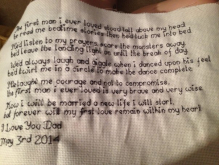 The first man i ever loved stood tall above my head
He read me bedtime stories then he'd tuck me into bed
He'd listen to my prayers scare the monsters away
He'd leave the landing light on until the break of day
He'd always laugh and giggle when i danced upon his feet
He'd twirl me in a circle to make the dance complete
He taught me courage and not to compromise
The first man i ever loved is very brave and very wise
Now i will be married a new life i will start
but forever will my first love remain within my heart
I Love You Dad
May 3rd 2014